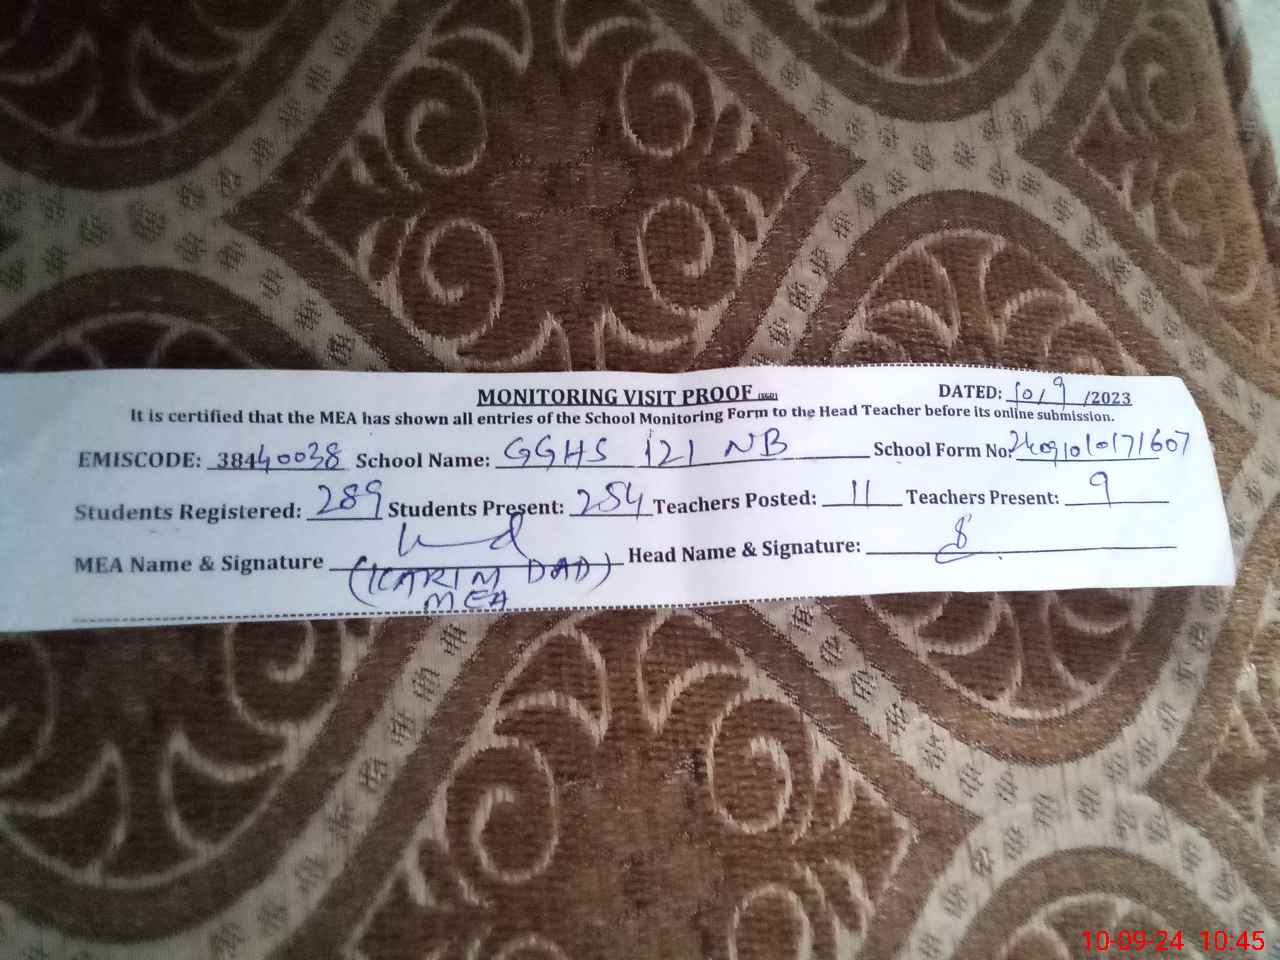 MONITORING VISIT PROOF (SGD)
DATED: 10/9/2023
It is certified that the MEA has shown all entries of the School Monitoring Form to the Head Teacher before its online submission.
EMISCODE: 38440038 School Name: GGHS 121 NB School Form No: 2409101017 1607
Students Registered: 289 Students Present: 254 Teachers Posted: 11 Teachers Present: 9
MEA Name & Signature Head Name & Signature:
(KARIM DAD)
MEA
10-09-24 10:45